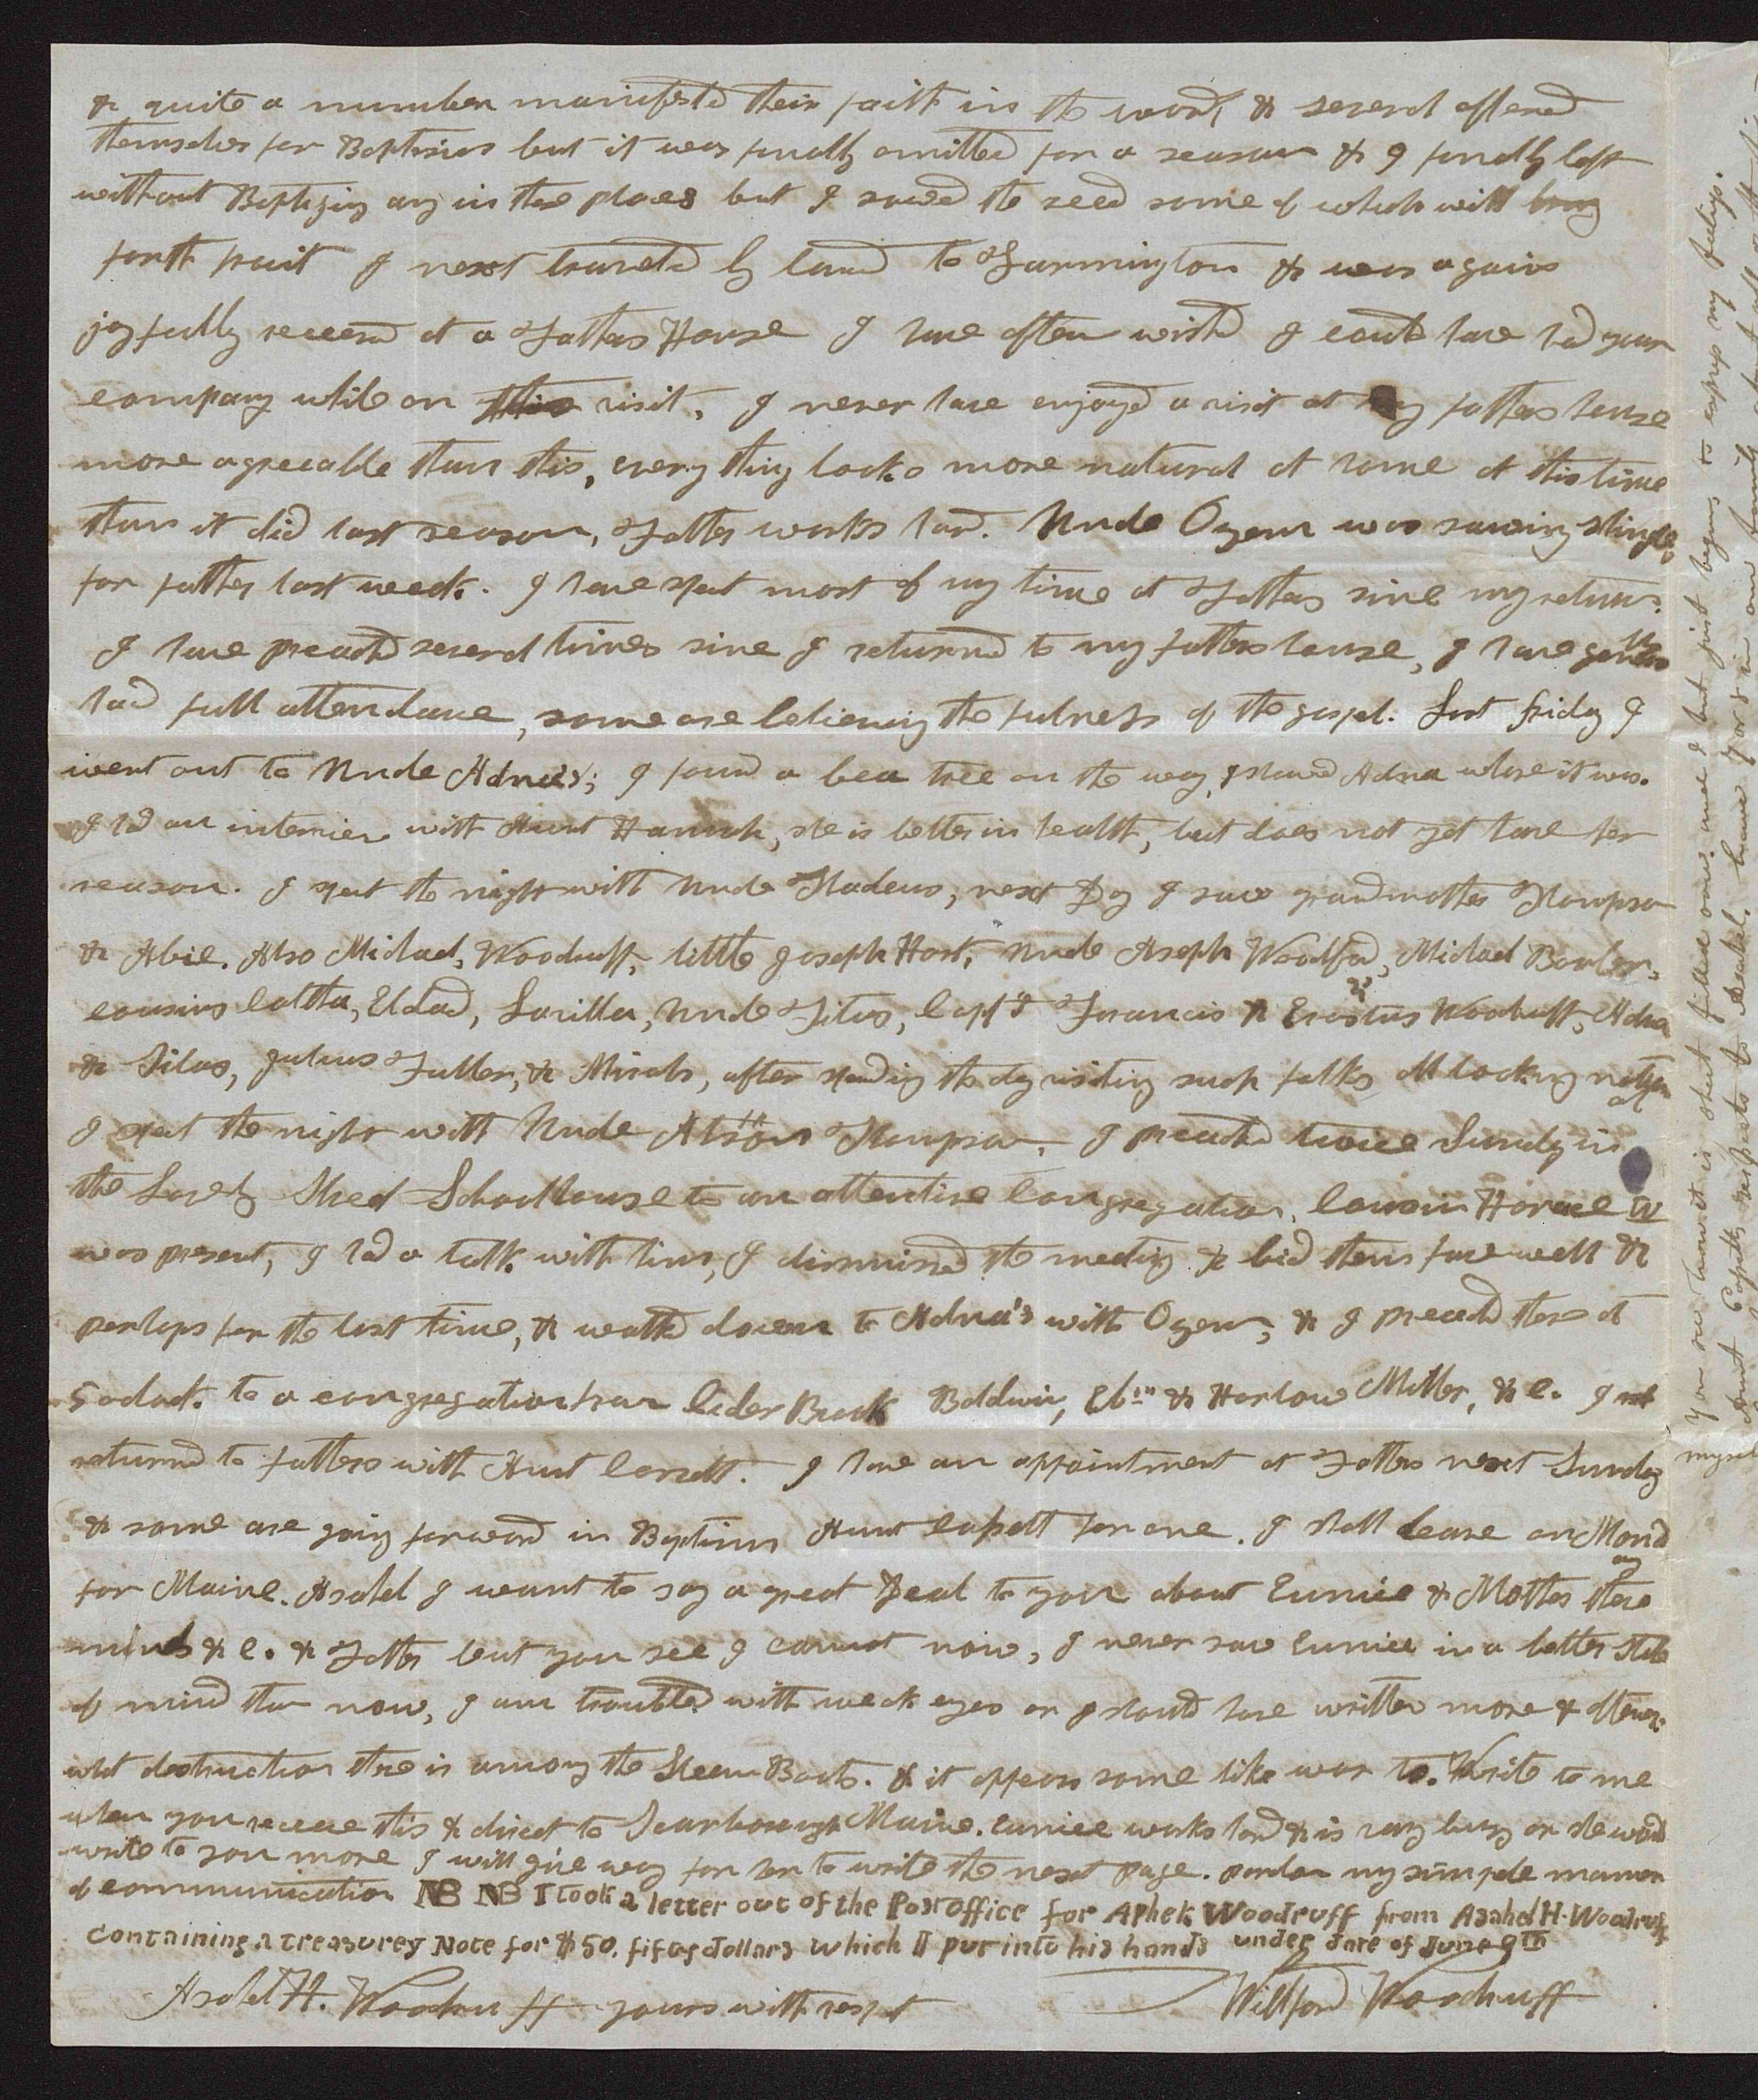 & quite a number manifested their faith in the work & several offered
themselves for Baptism but it was finally omitted for a season & I finally left
without Baptizing any in these places but I sowed the seed some of which will bring
forth fruit I next traveled by land to Farmington & was again
joyfully received at a Fathers House I have often wished I could have had your
company while on this visit, I never have enjoyed a visit at my fathers house
more agreeable than this, every thing looks more natural at home at this time
than it did last season, Father works hard. Uncle Ozem was sawing shingles
for father last week. I have spent most of my time at Fathers since my return.
I have preached several times since I returned to my fathers house, I have generally
had full attendance, some are believing the fulness of the gospel. Last friday I
went out to Uncle Adna's; I found a bea tree on the way, I shewed Adna where it was.
I had an interview with Aunt Hannah, she is better in health, but does not yet have her
reason. I spent the night with Uncle Thadeus, next Day I saw grandmother Thompson
& Abie. Also Michael, Woodruff, little Joseph Hart, Uncle Aseph Woodford, Michael Barber,
cousins Eldad, Lurilla, Uncle Titus, Capt Francis & Erastus Woodruff, Adna
& Silas, Julius Fuller, & Micah, after spending the day visiting such folks all looking natural
I spent the night with Uncle Alson Thompson, I preached twice Sunday in
the Lovely Street Schoolhouse to an attentive Congregation, Cousin Horace W
was present, I had a talk with him, I dismissed the meeting & bid them farewell &
perhaps for the last time, & walked down to Adna's with Ozem, & I preached there at
5 oclock to a congregation from Cider Brook Baldwin, Ebn & Harlow Miller, &c. I
returned to fathers with Aunt Cossett. I have an appointment at Fathers next Sunday
& some are going forward in Baptism Aunt Cossett for one. I shall leave on Monday
for Maine. Asahel I want to say a great Deal to you about Eunice & Mother there
minds &c. & Father but you see I cannot now, I never saw Eunice in a better state
of mind than now, I am troubled with weak eyes or I should have written more & oftener.
what destruction there is among the Steem Boats. & it appears some like war to. Write to me
when you receive this & direct to Scarborough Maine. Eunice works hard & is vary busy or she would
write to you more I will give way for her to write the next page. pardon my simple manner
of communication NB NB I took a letter out of the Post office for Aphek Woodruff from Asahel H. Woodruff
containing a treasurey Note for $50. fifty dollars which I put into his hands under date of June 9th
Asahel H. Woodruff yours with respect Willford Woodruff
You see how it is sheet filled one's and I but just begins to express my feelings.
Aunt Cossetts respects to Asahel.
myself